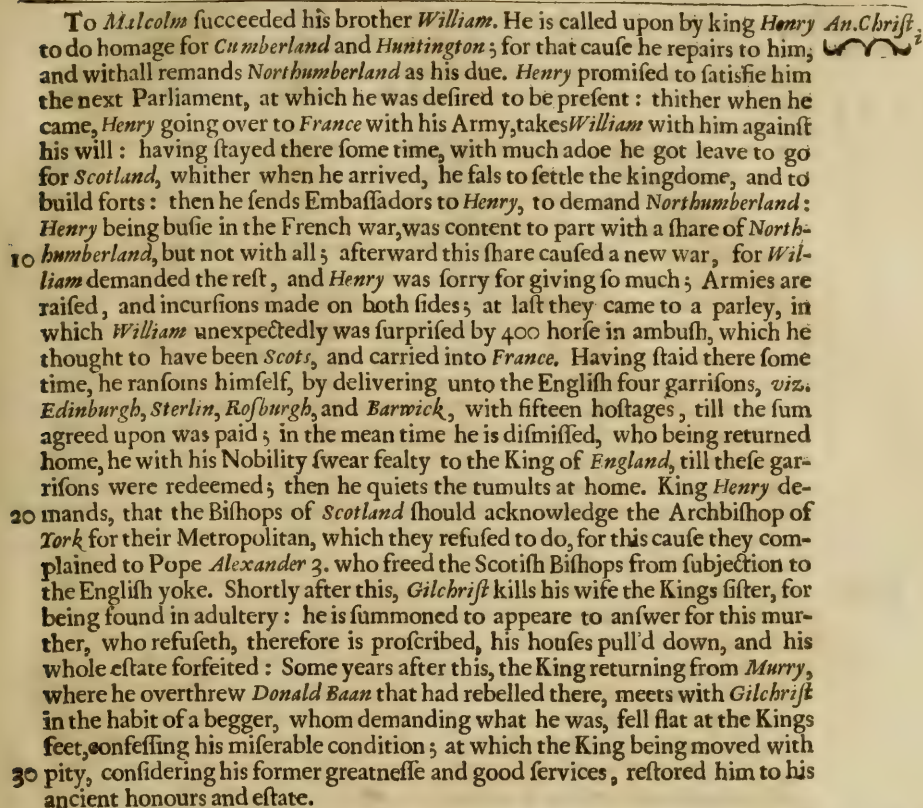 To Malcolm ſucceeded his brother William. He is called upon by king Henry An. Chriſt.
to do homage for Cumberland and Huntington; for that cauſe he repairs to him,
and withall remands Northumberland as his due. Henry promiſed to ſatisfie him
the next Parliament, at which he was deſired to be preſent: thither when he
came, Henry going over to France with his Army, takes William with him againſt
his will: having ſtayed there ſome time, with much adoe he got leave to go
for Scotland, whither when he arrived, he fals to ſettle the kingdome, and to
build forts: then he ſends Embaſſadors to Henry, to demand Northumberland:
Henry being buſie in the French war, was content to part with a ſhare of North-
10 humberland, but not with all; afterward this ſhare cauſed a new war, for Wil-
liam demanded the reſt, and Henry was ſorry for giving ſo much; Armies are
raiſed, and incurſions made on both ſides; at laſt they came to a parley, in
which William unexpectedly was ſurpriſed by 400 horſe in ambuſh, which he
thought to have been Scots, and carried into France. Having ſtaid there ſome
time, he ranſoms himſelf, by delivering unto the Engliſh four garriſons, viz.
Edinburgh, Sterlin, Roſburgh, and Barwick, with fifteen hoſtages, till the ſum
agreed upon was paid; in the mean time he is diſmiſſed, who being returned
home, he with his Nobility ſwear fealty to the King of England, till theſe gar-
riſons were redeemed; then he quiets the tumults at home. King Henry de-
20 mands, that the Biſhops of Scotland ſhould acknowledge the Archbiſhop of
York for their Metropolitan, which they refuſed to do, for this cauſe they com-
plained to Pope Alexander 3. who freed the Scotiſh Biſhops from ſubjection to
the Engliſh yoke. Shortly after this, Gilchriſt kills his wife the Kings ſiſter, for
being found in adultery: he is ſummoned to appeare to anſwer for this mur-
ther, who refuſeth, therefore is proſcribed, his houſes pull'd down, and his
whole eſtate forfeited: Some years after this, the King returning from Murry,
where he overthrew Donald Baan that had rebelled there, meets with Gilchriſt
in the habit of a begger, whom demanding what he was, fell flat at the Kings
feet, confeſſing his miſerable condition; at which the King being moved with
30 pity, conſidering his former greatneſſe and good ſervices, reſtored him to his
ancient honours and eſtate.